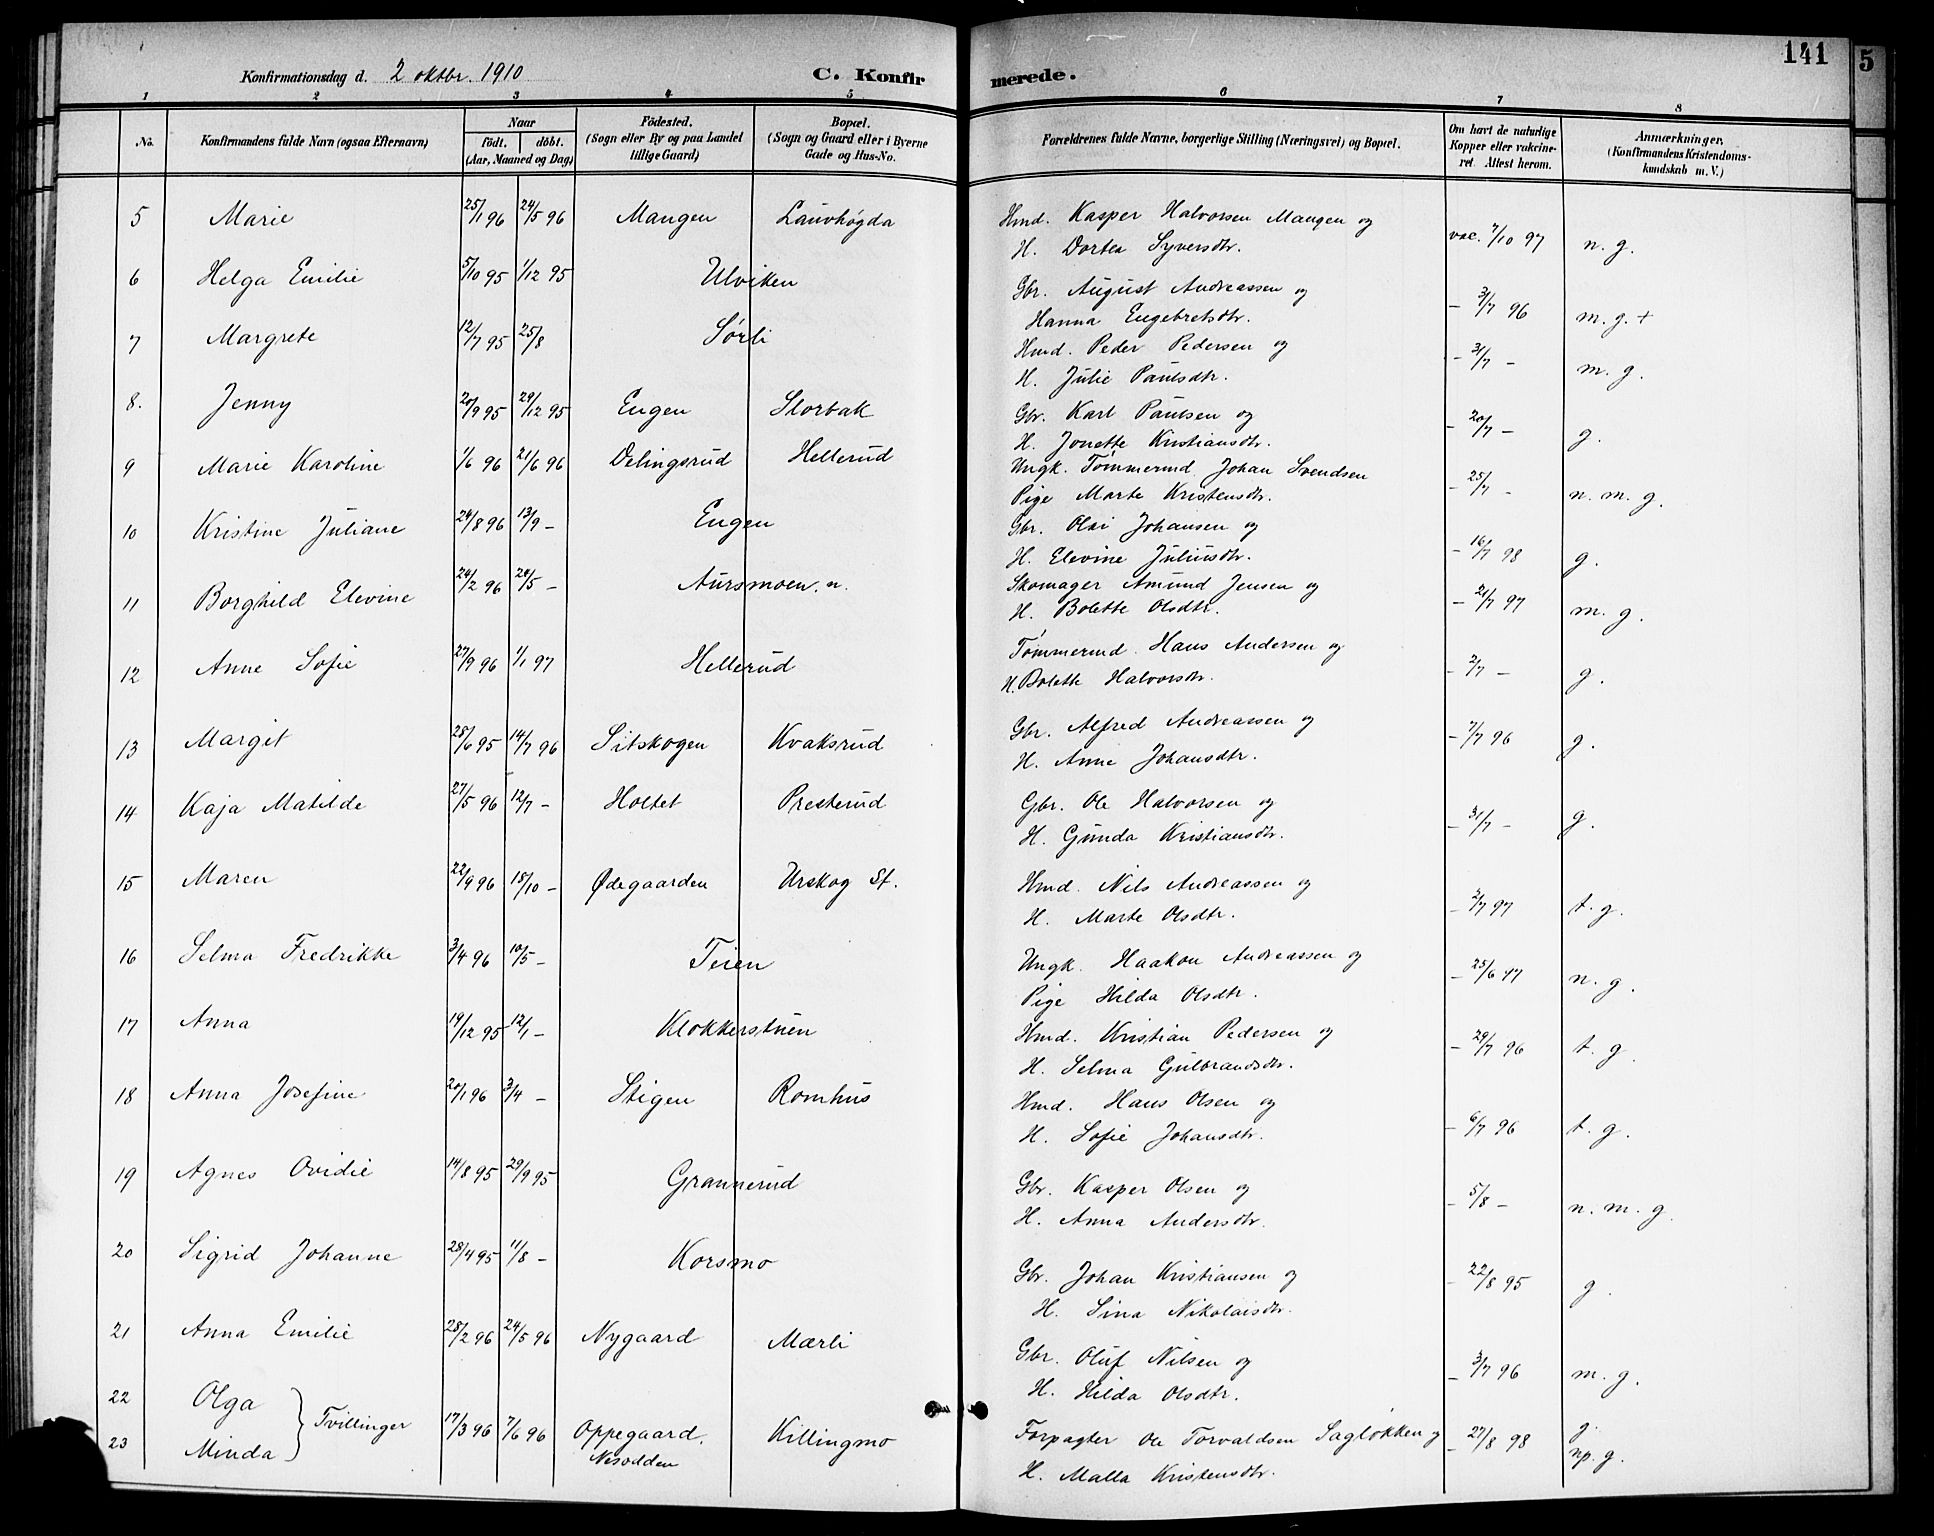 141
5
Konfirmationsdag d. 2 oktbr. 1910
C. Konfirmerede.
1 2 3 4 5 6 7 8
No.
Konfirmandens fulde Navn (ogsaa Efternavn)
Naar
födt. döbt.
(Aar, Maaned og Dag)
Födested.
(Sogn eller By og paa Landet
tillige Gaard)
Bopæl.
(Sogn og Gaard eller i Byerne
Gade og Hus-No.
Forældrenes fulde Navne, borgerlige Stilling (Næringsvei) og Bopæl.
Om havt de naturlige
Kopper eller vakcine-
ret. Attest herom.
Anmærkninger,
(Konfirmandens Kristendoms-
kundskab m. V.)
5 Marie 25/1 96 24/5 96 Mangen Lauvhögda Hmd. Kasper Halvorsen Mangen og
H. Dortea Syversdtr. vac. 7/10 97 n. g.
6 Helga Emilie 5/10 95 1/12 95 Ulviken Gbr. August Andreassen og
Hanna Engebretsdtr. - 3/7 96 m. g. +
7 Margrete 12/7 95 25/8 Sörli Hmd. Peder Pedersen og
H. Julie Paulsdtr. - 31/7 - m. g.
8. Jenny 20/9 95 29/12 95 Engen Storbak Gbr. Karl Paulsen og
H. Jonette Kristiansdtr. - 20/7 - g.
9 Marie Karoline 1/6 96 21/6 96 Delingsrud Hellerud Ungk. Tömmermd. Johan Svendsen
Pige Marte Kristensdtr. - 25/7 - n. m. g.
10 Kristine Juliane 24/8 96 13/9 - Engen Gbr. Olai Johansen og
H. Elevine Juliusdtr. - 16/7 98 g.
11 Borghild Elevine 24/2 96 24/5 - Aursmoen. n. Skomager Amund Jensen og
H. Bolette Olsdtr. - 21/7 97 m. g.
12 Anne Sofie 27/9 96 1/1 97 Hellerud Tömmermd. Hans Andersen og
H. Bolette Halvorsdtr. - 2/7 - g.
13 Margit 28/6 95 14/7 96 Sitskogen Kvaksrud Gbr. Alfred Andreassen og
H. Anne Johansdtr. - 7/7 96 g.
14 Kaja Matilde 27/5 96 12/7 - Holtet Presterud Gbr. Ole Halvorsen og
H. Gunda Kristiansdtr. - 31/7 - g.
15 Maren 22/9 96 18/10 - Ødegaarden Urskog St. Hmd. Nils Andreassen og
H. Marte Olsdtr. - 2/7 97 t. g.
16 Selma Fredrikke 3/4 96 10/5 - Teien Ungk. Haakon Andreassen og
Pige Hilda Olsdtr. - 25/6 97 n. g.
17 Anna 19/12 95 12/1 - Klokkerstuen Hmd. Kristian Pedersen og
H. Selma Gulbrandsdtr. - 29/7 96 t. g.
18 Anna Josefine 20/1 96 3/4 - Stigen Romhus Hmd. Hans Olsen og
H. Sofie Johansdtr. - 6/7 96 t. g.
19 Agnes Ovidie 14/8 95 29/9 95 Grannerud Gbr. Kasper Olsen og
H. Anna Andersdtr. - 5/8 - n. m. g.
20 Sigrid Johanne 28/4 95 11/8 - Korsmo Gbr. Johan Kristiansen og
H. Sina Nikolaisdtr. - 22/8 95 g.
21 Anna Emilie 28/2 96 24/5 96 Nygaard Mærli Gbr. Oluf Nilsen og
H. Hilda Olsdtr. - 3/7 96 m. g.
22 Olga
Tvillinger 17/3 96 7/6 96 Oppegaard. Killingmo Forpagter Ole Torvaldsen Saglökken og - 27/8 98 g.
23 Minda Nesodden H. Malla Kristensdtr. np. g.